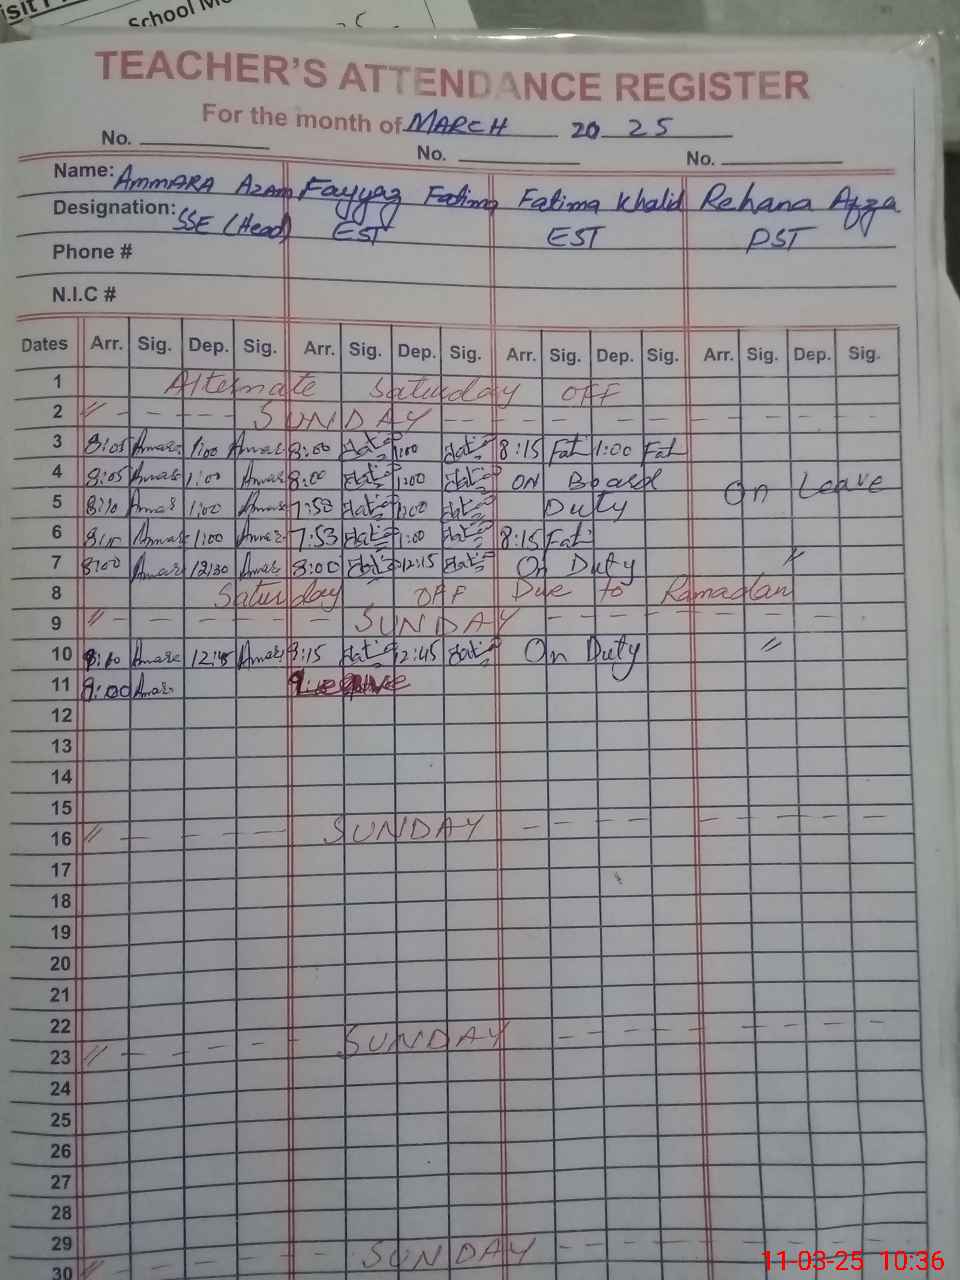 School
TEACHER'S ATTENDANCE REGISTER
For the month of MARCH 20 25
No. No. No.
Name: AMMARA Azam Fayyaz Fatima Fatima Khalid Rehana
Designation: SSE (Head) EST EST PST
Phone #
N.I.C #
Dates Arr. Sig. Dep. Sig. Arr. Sig. Dep. Sig. Arr. Sig. Dep. Sig. Arr. Sig. Dep. Sig.
1 Alternate Saturday OFF
2 SUNDAY
3 8:05 1:00 8:00 1:00 8:15 Fat 1:00 Fat
4 8:05 1:00 8:00 1:00 ON Board On Leave
5 8:10 1:00 7:58 1:00 Duty
6 1:00 7:53 1:00 8:15 Fat
7 8:00 12:30 8:00 12:15 On Duty
8 Saturday OFF Due to Ramadan
9 SUNDAY
10 12:45 12:45 On Duty
11 9:00
12
13
14
15
16 SUNDAY
17
18
19
20
21
22
23 SUNDAY
24
25
26
27
28
29
30 SUNDAY
11-03-25 10:36